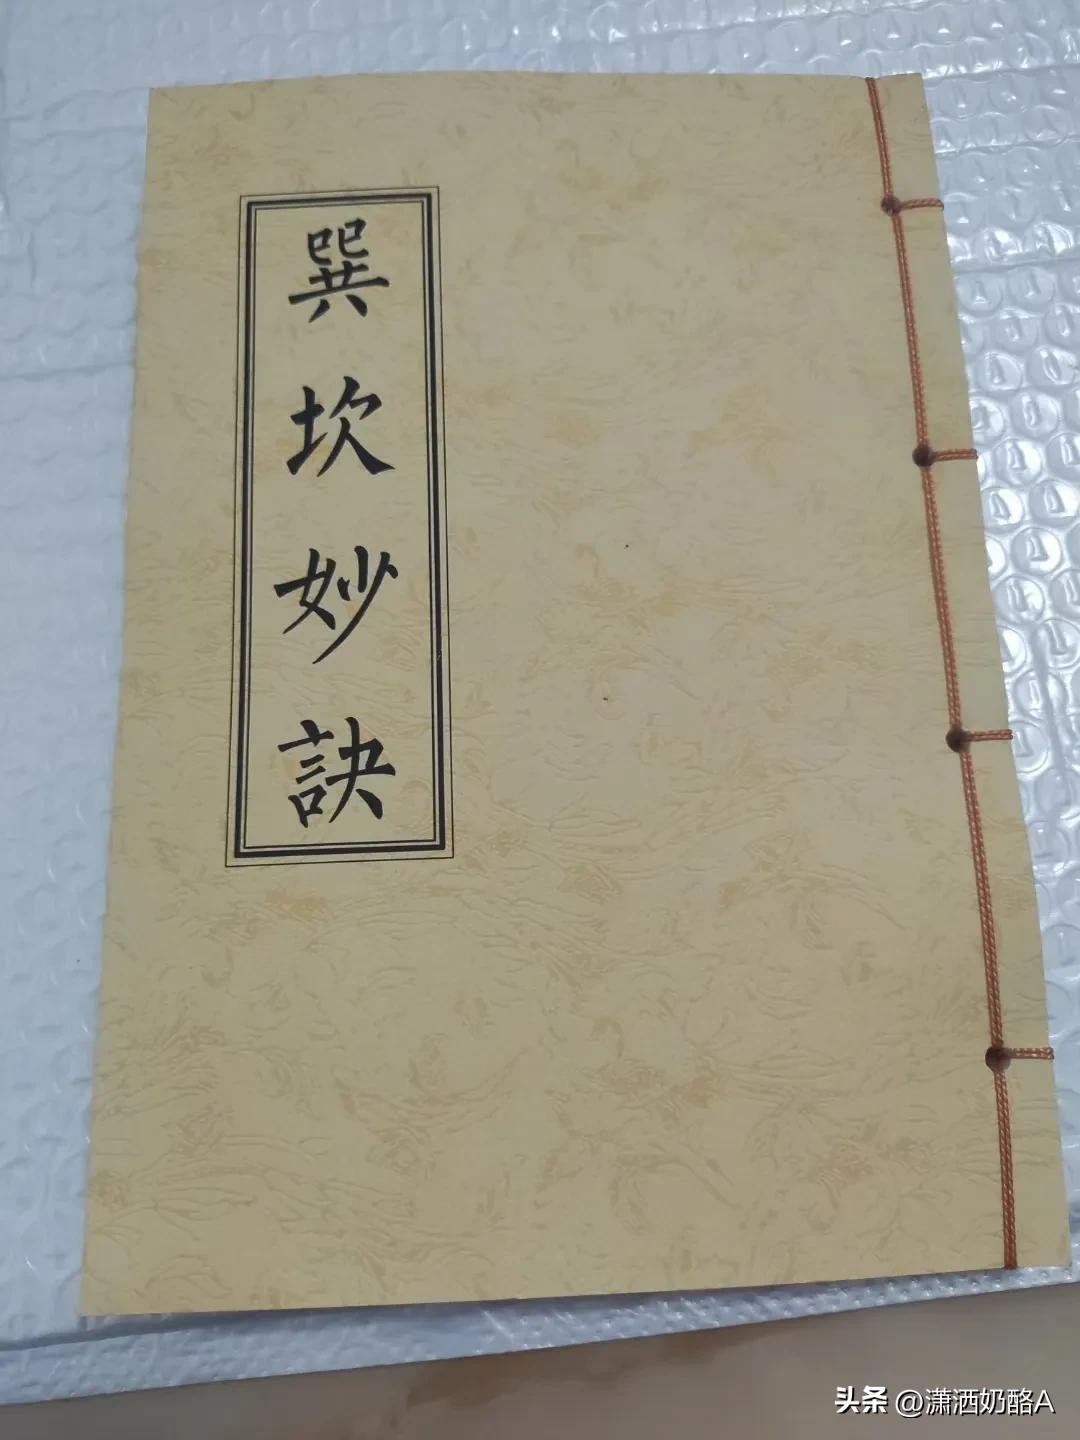 巽坎妙訣
头条 @潇洒奶酪A